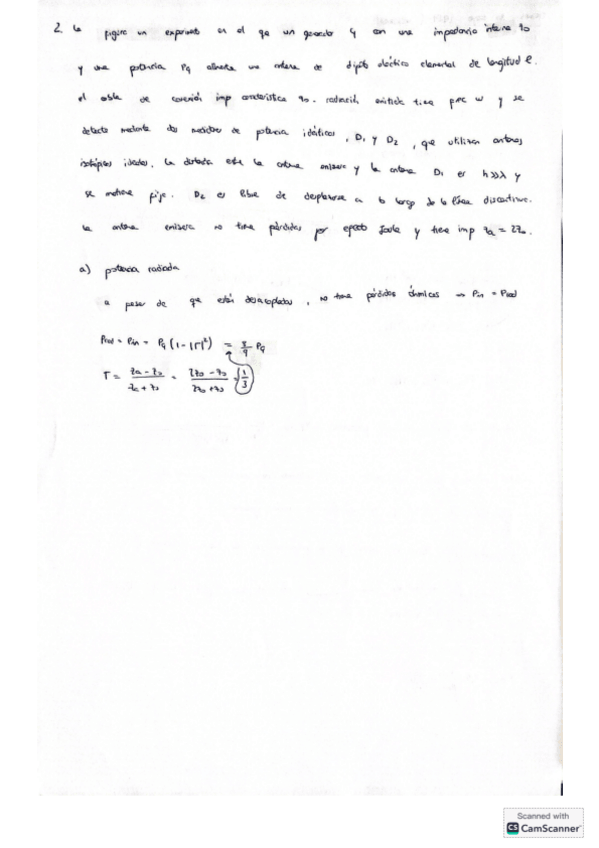 2. La figura un experimento en el que un generador G con una impedancia interna z0
y una potencia Pg alimenta una antena de dipolo eléctrico elemental de longitud l.
el cable de conexión imp característica z0. radiación emitida tiene frec w y se
detecta mediante dos medidores de potencia idénticos, D1 y D2, que utilizan antenas
isotrópicas ideales. La distancia entre la antena emisora y la antena D1 es h>>λ y
se mantiene fija. D2 es libre de desplazarse a lo largo de la línea discontinua.
La antena emisora no tiene pérdidas por efecto Joule y tiene imp za = 2z0.
a) potencia radiada
a pesar de que están desacopladas, no tiene pérdidas óhmicas → Pin = Prad
Prad = Pin = Pg (1-|Γ|²) = 8/9 Pg
Γ = za - z0 / za + z0 = 2z0 - z0 / 2z0 + z0 = 1/3
Scanned with
CS CamScanner